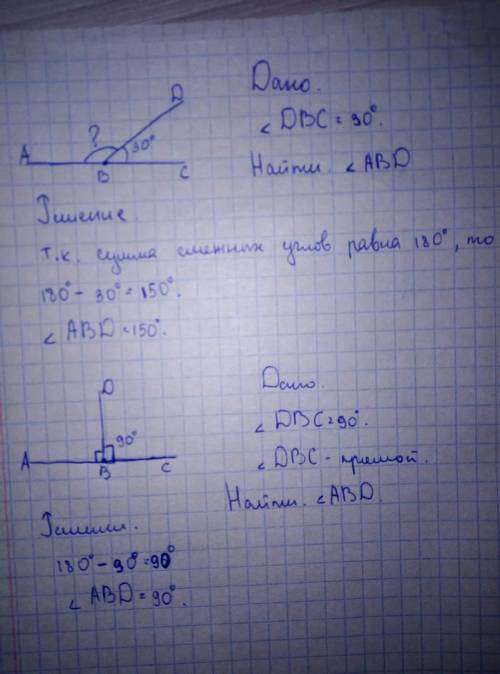 D
?
30°
A
B
C
Дано.
∠ DBC = 30°
Найти. ∠ ABD
Решение.
Т.к. сумма смежных углов равна 180°, то
180° - 30° = 150°.
∠ ABD = 150°.
D
90°
A
B
C
Дано.
∠ DBC = 90°.
∠ DBC - прямой.
Найти. ∠ABD.
Решение.
180° - 90° = 90°
∠ ABD = 90°.